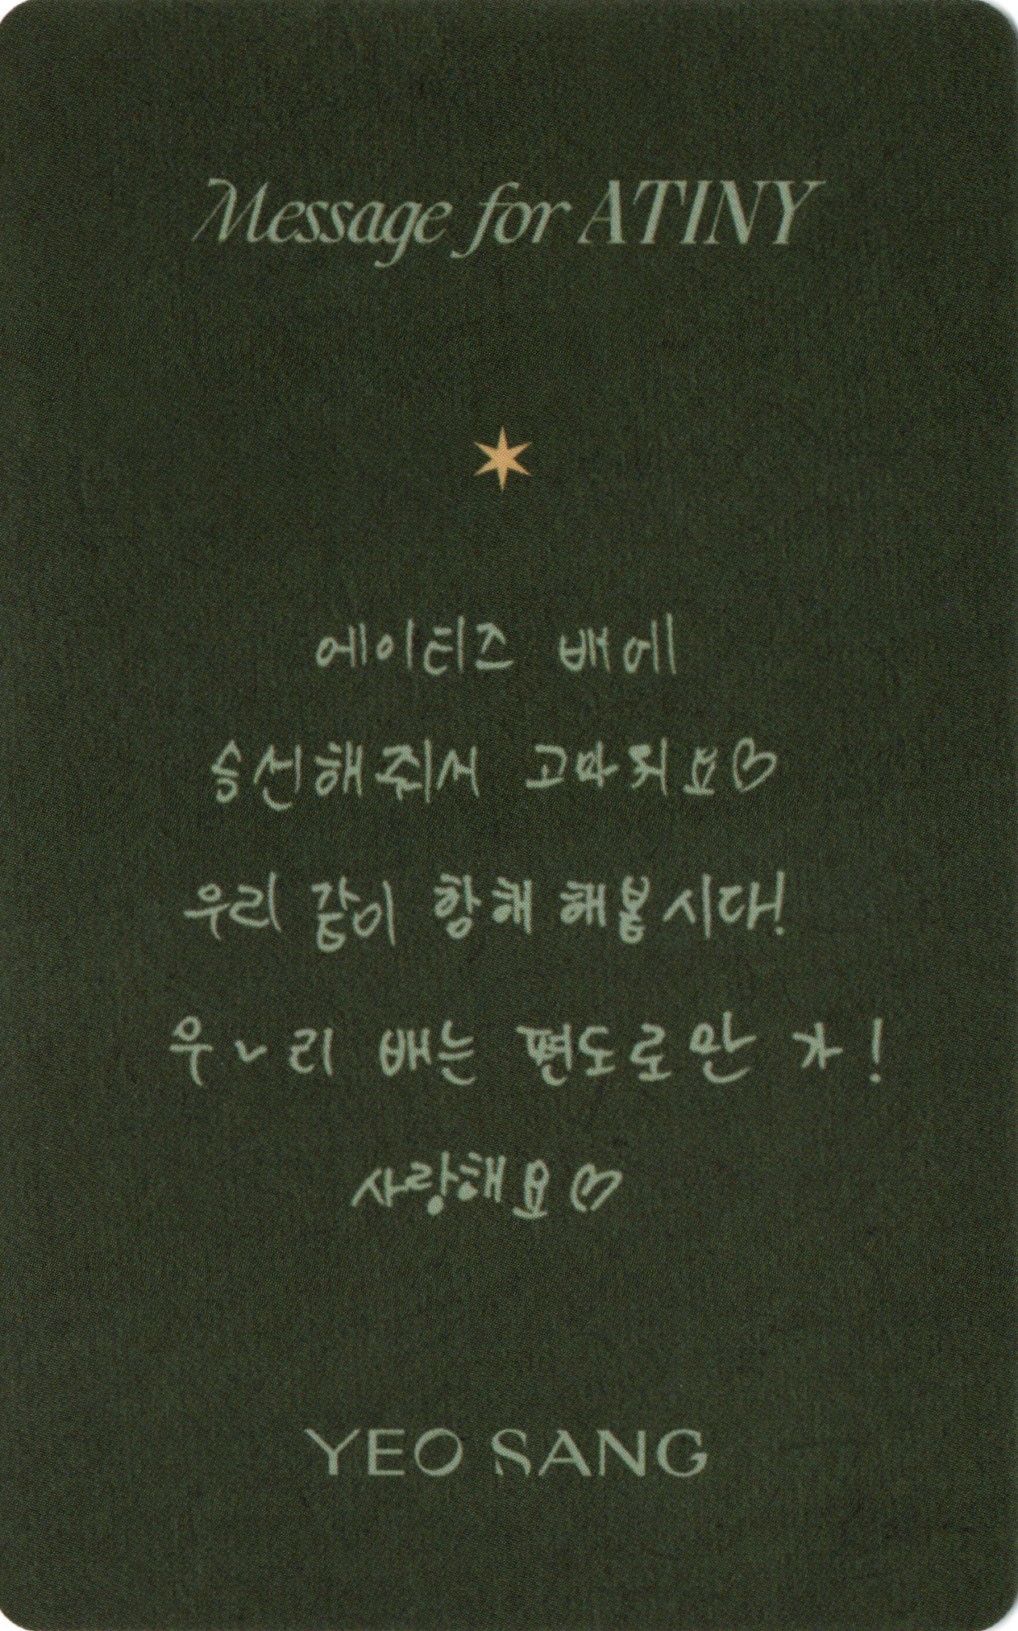 Message for ATINY
에이티즈 배에
승선해줘서 고마워요♡
우리 같이 항해 해봅시다!
우리 배는 편도로만 가!
사랑해요♡
YEO SANG